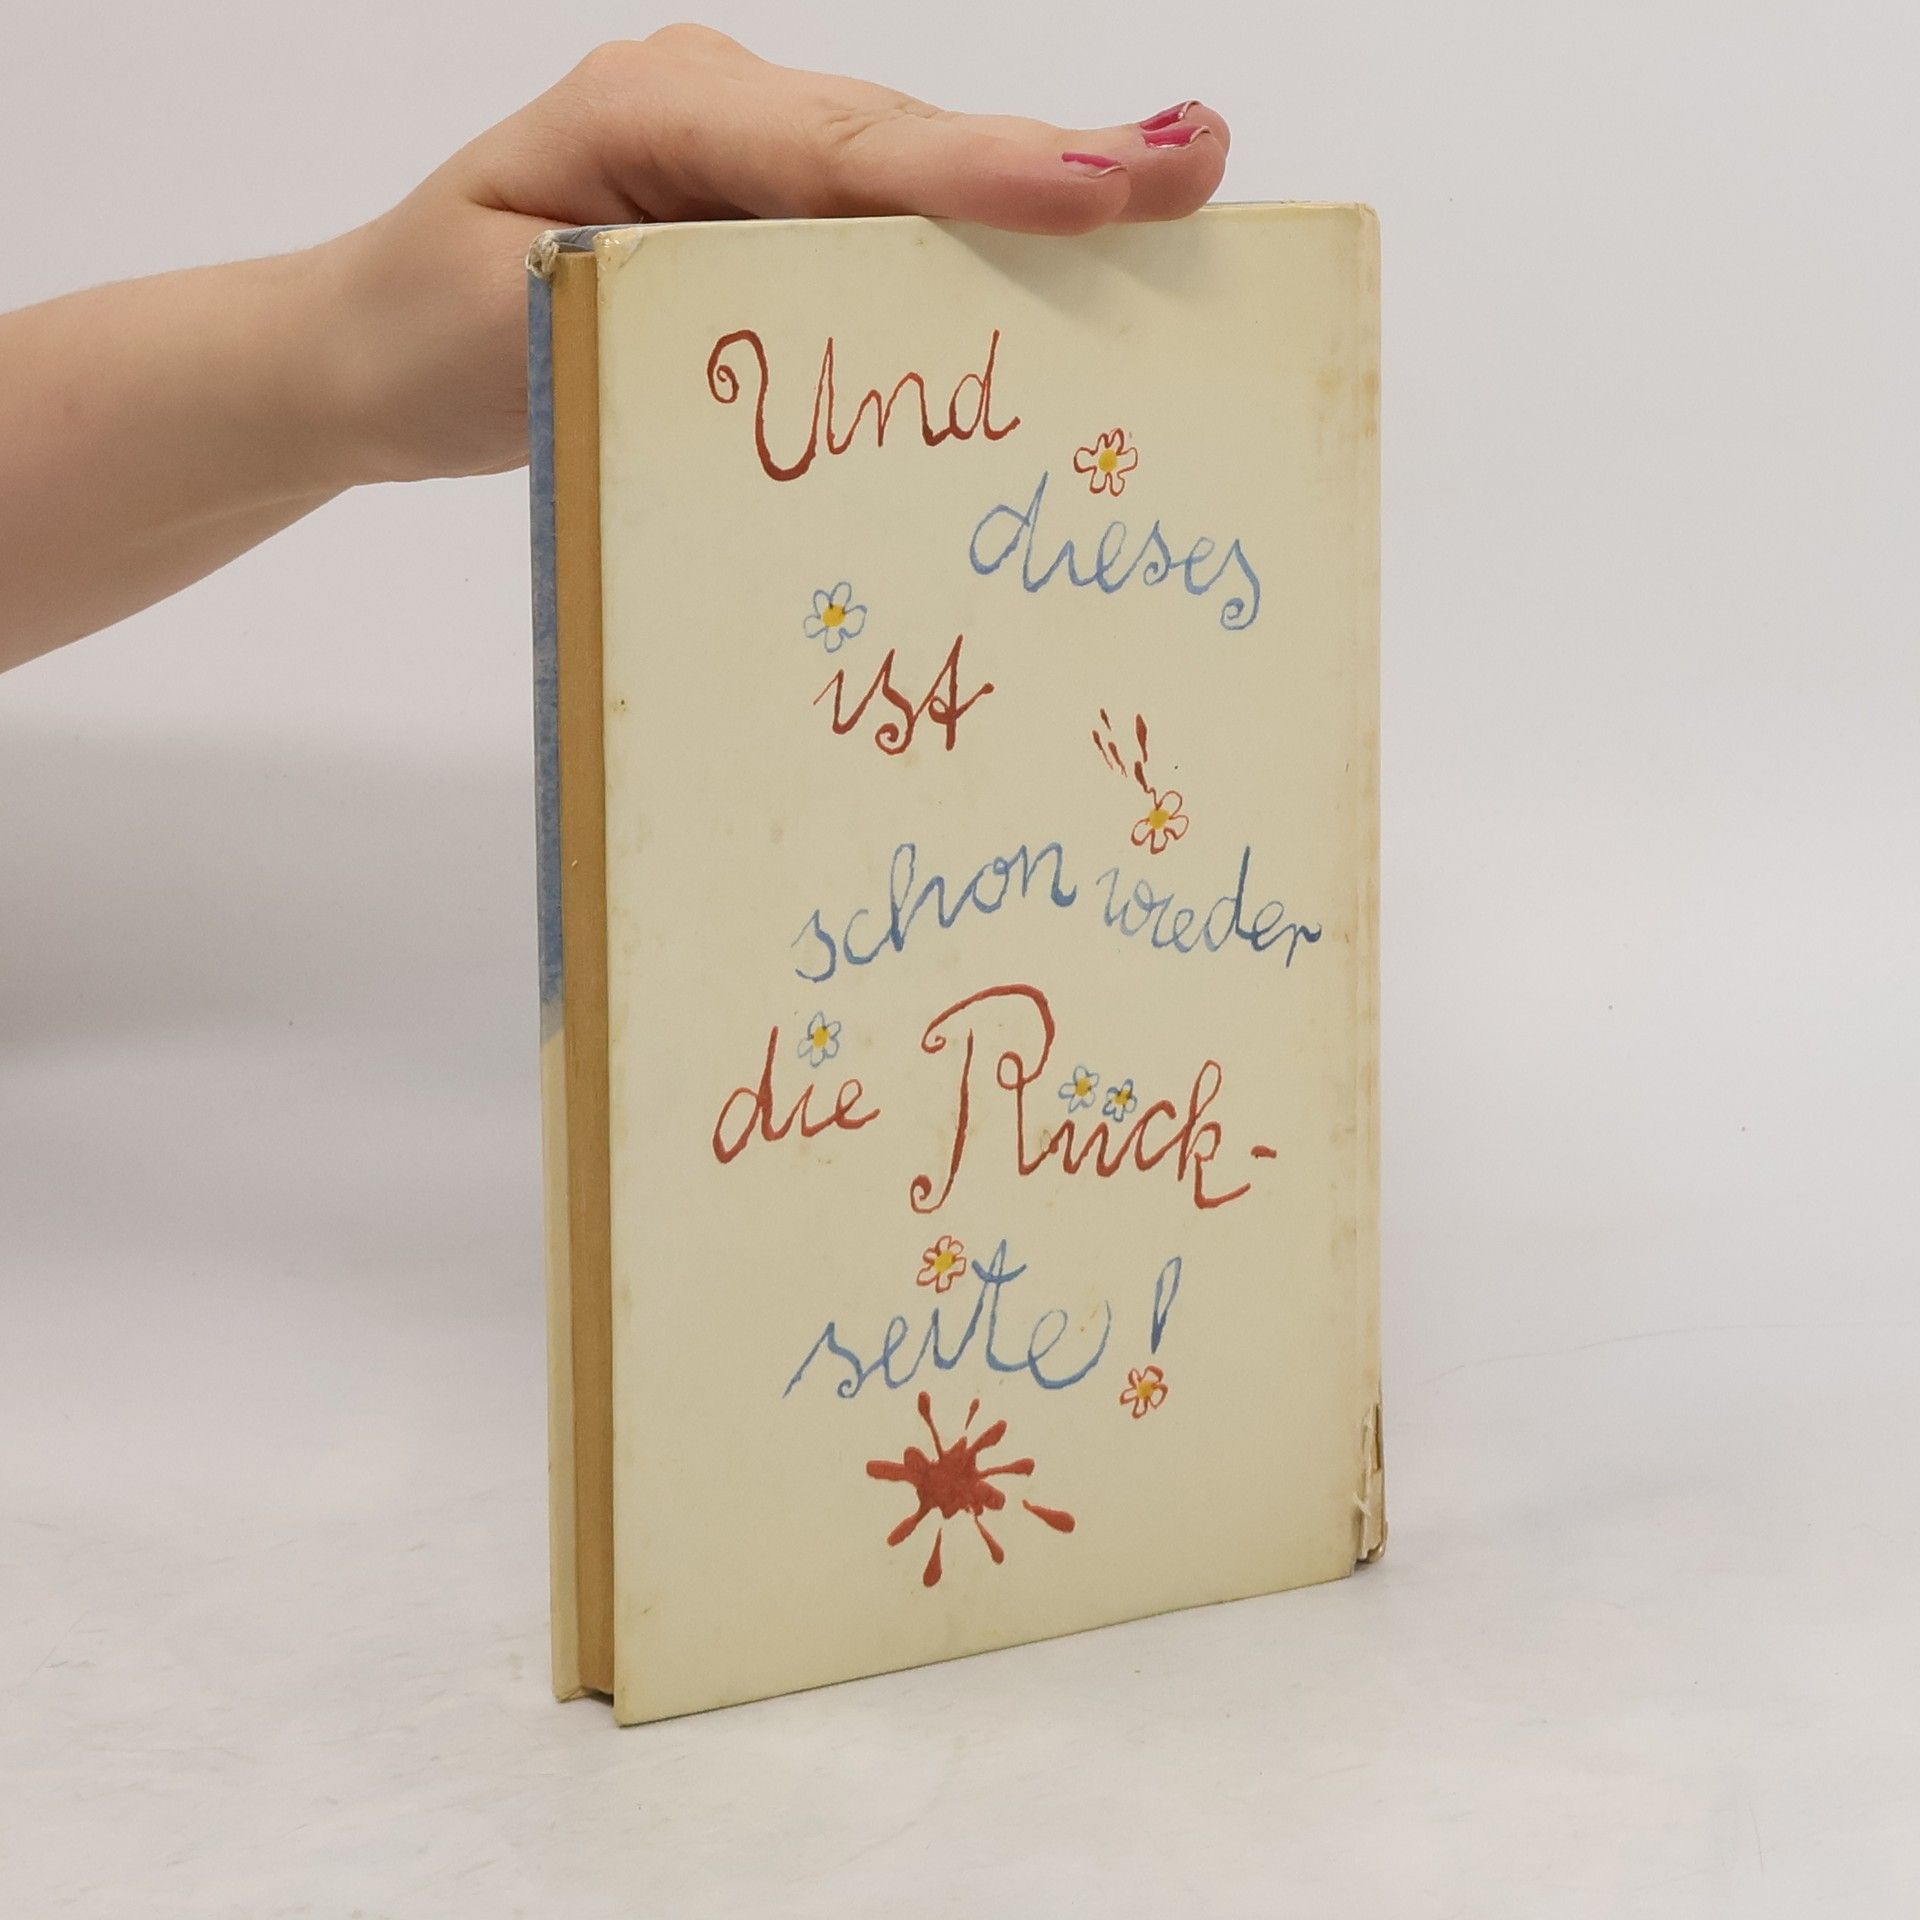 Und
dieses
ist
schon wieder
die Rück-
seite!